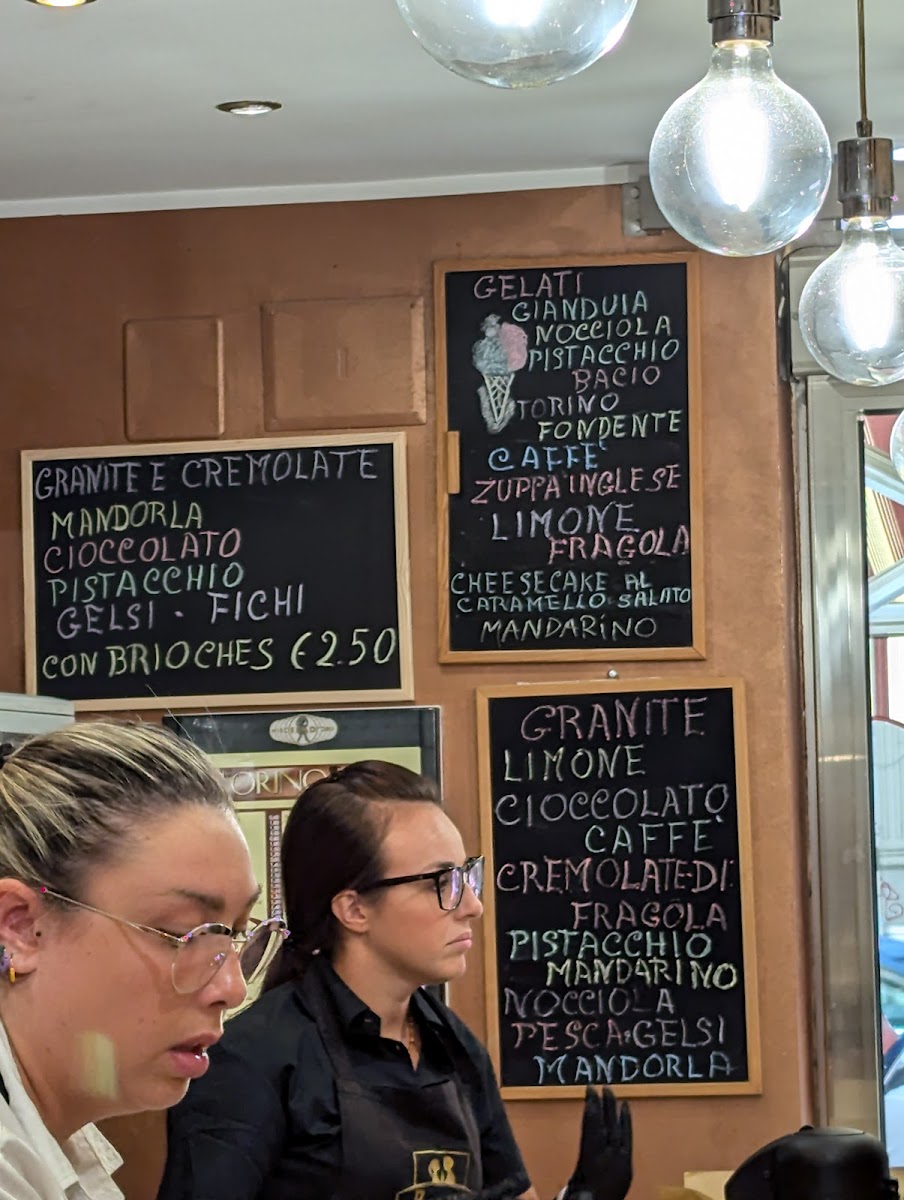 GRANITE E CREMOLATE
MANDORLA
CIOCCOLATO
PISTACCHIO
GELSI - FICHI
CON BRIOCHES €2.50
GELATI
GIANDUIA
NOCCIOLA
PISTACCHIO
BACIO
TORINO
FONDENTE
CAFFE'
ZUPPA INGLESE
LIMONE
FRAGOLA
CHEESECAKE AL
CARAMELLO SALATO
MANDARINO
GRANITE
LIMONE
CIOCCOLATO
CAFFE'
CREMOLATE DI:
FRAGOLA
PISTACCHIO
MANDARINO
NOCCIOLA
PESCA-GELSI
MANDORLA